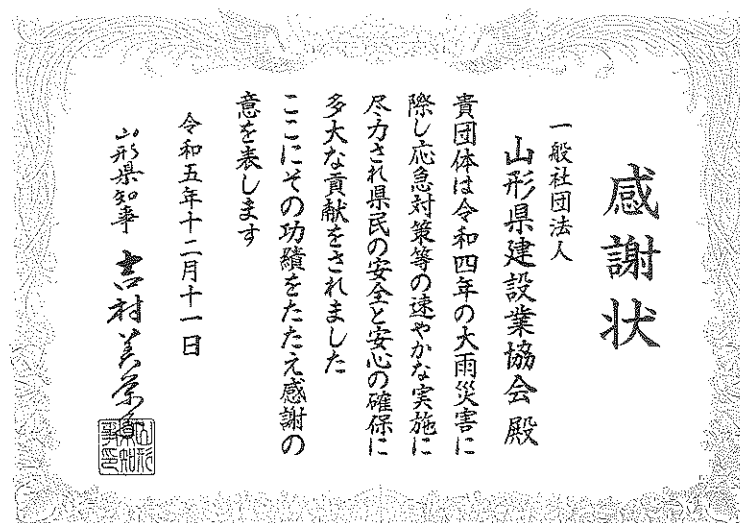 感謝状
一般社団法人
山形県建設業協会殿
貴団体は令和四年の大雨災害に
際し応急対策等の速やかな実施に
尽力され県民の安全と安心の確保に
多大な貢献をされました
ここにその功績をたたえ感謝の
意を表します
令和五年十二月十一日
山形県知事 吉村美栄子